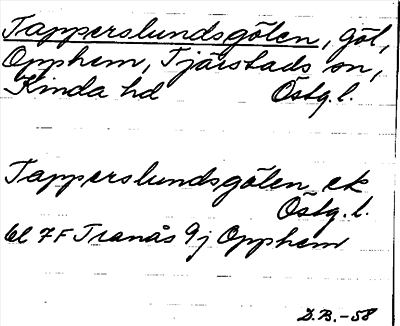 Tapperslundsgölen, göl,
Opphem, Tjärstads sn,
Kinda hd Östg. l.
Tapperslundsgölen ek
Östg. l.
bl 7F Tranås 9j Opphem
D.B. -58